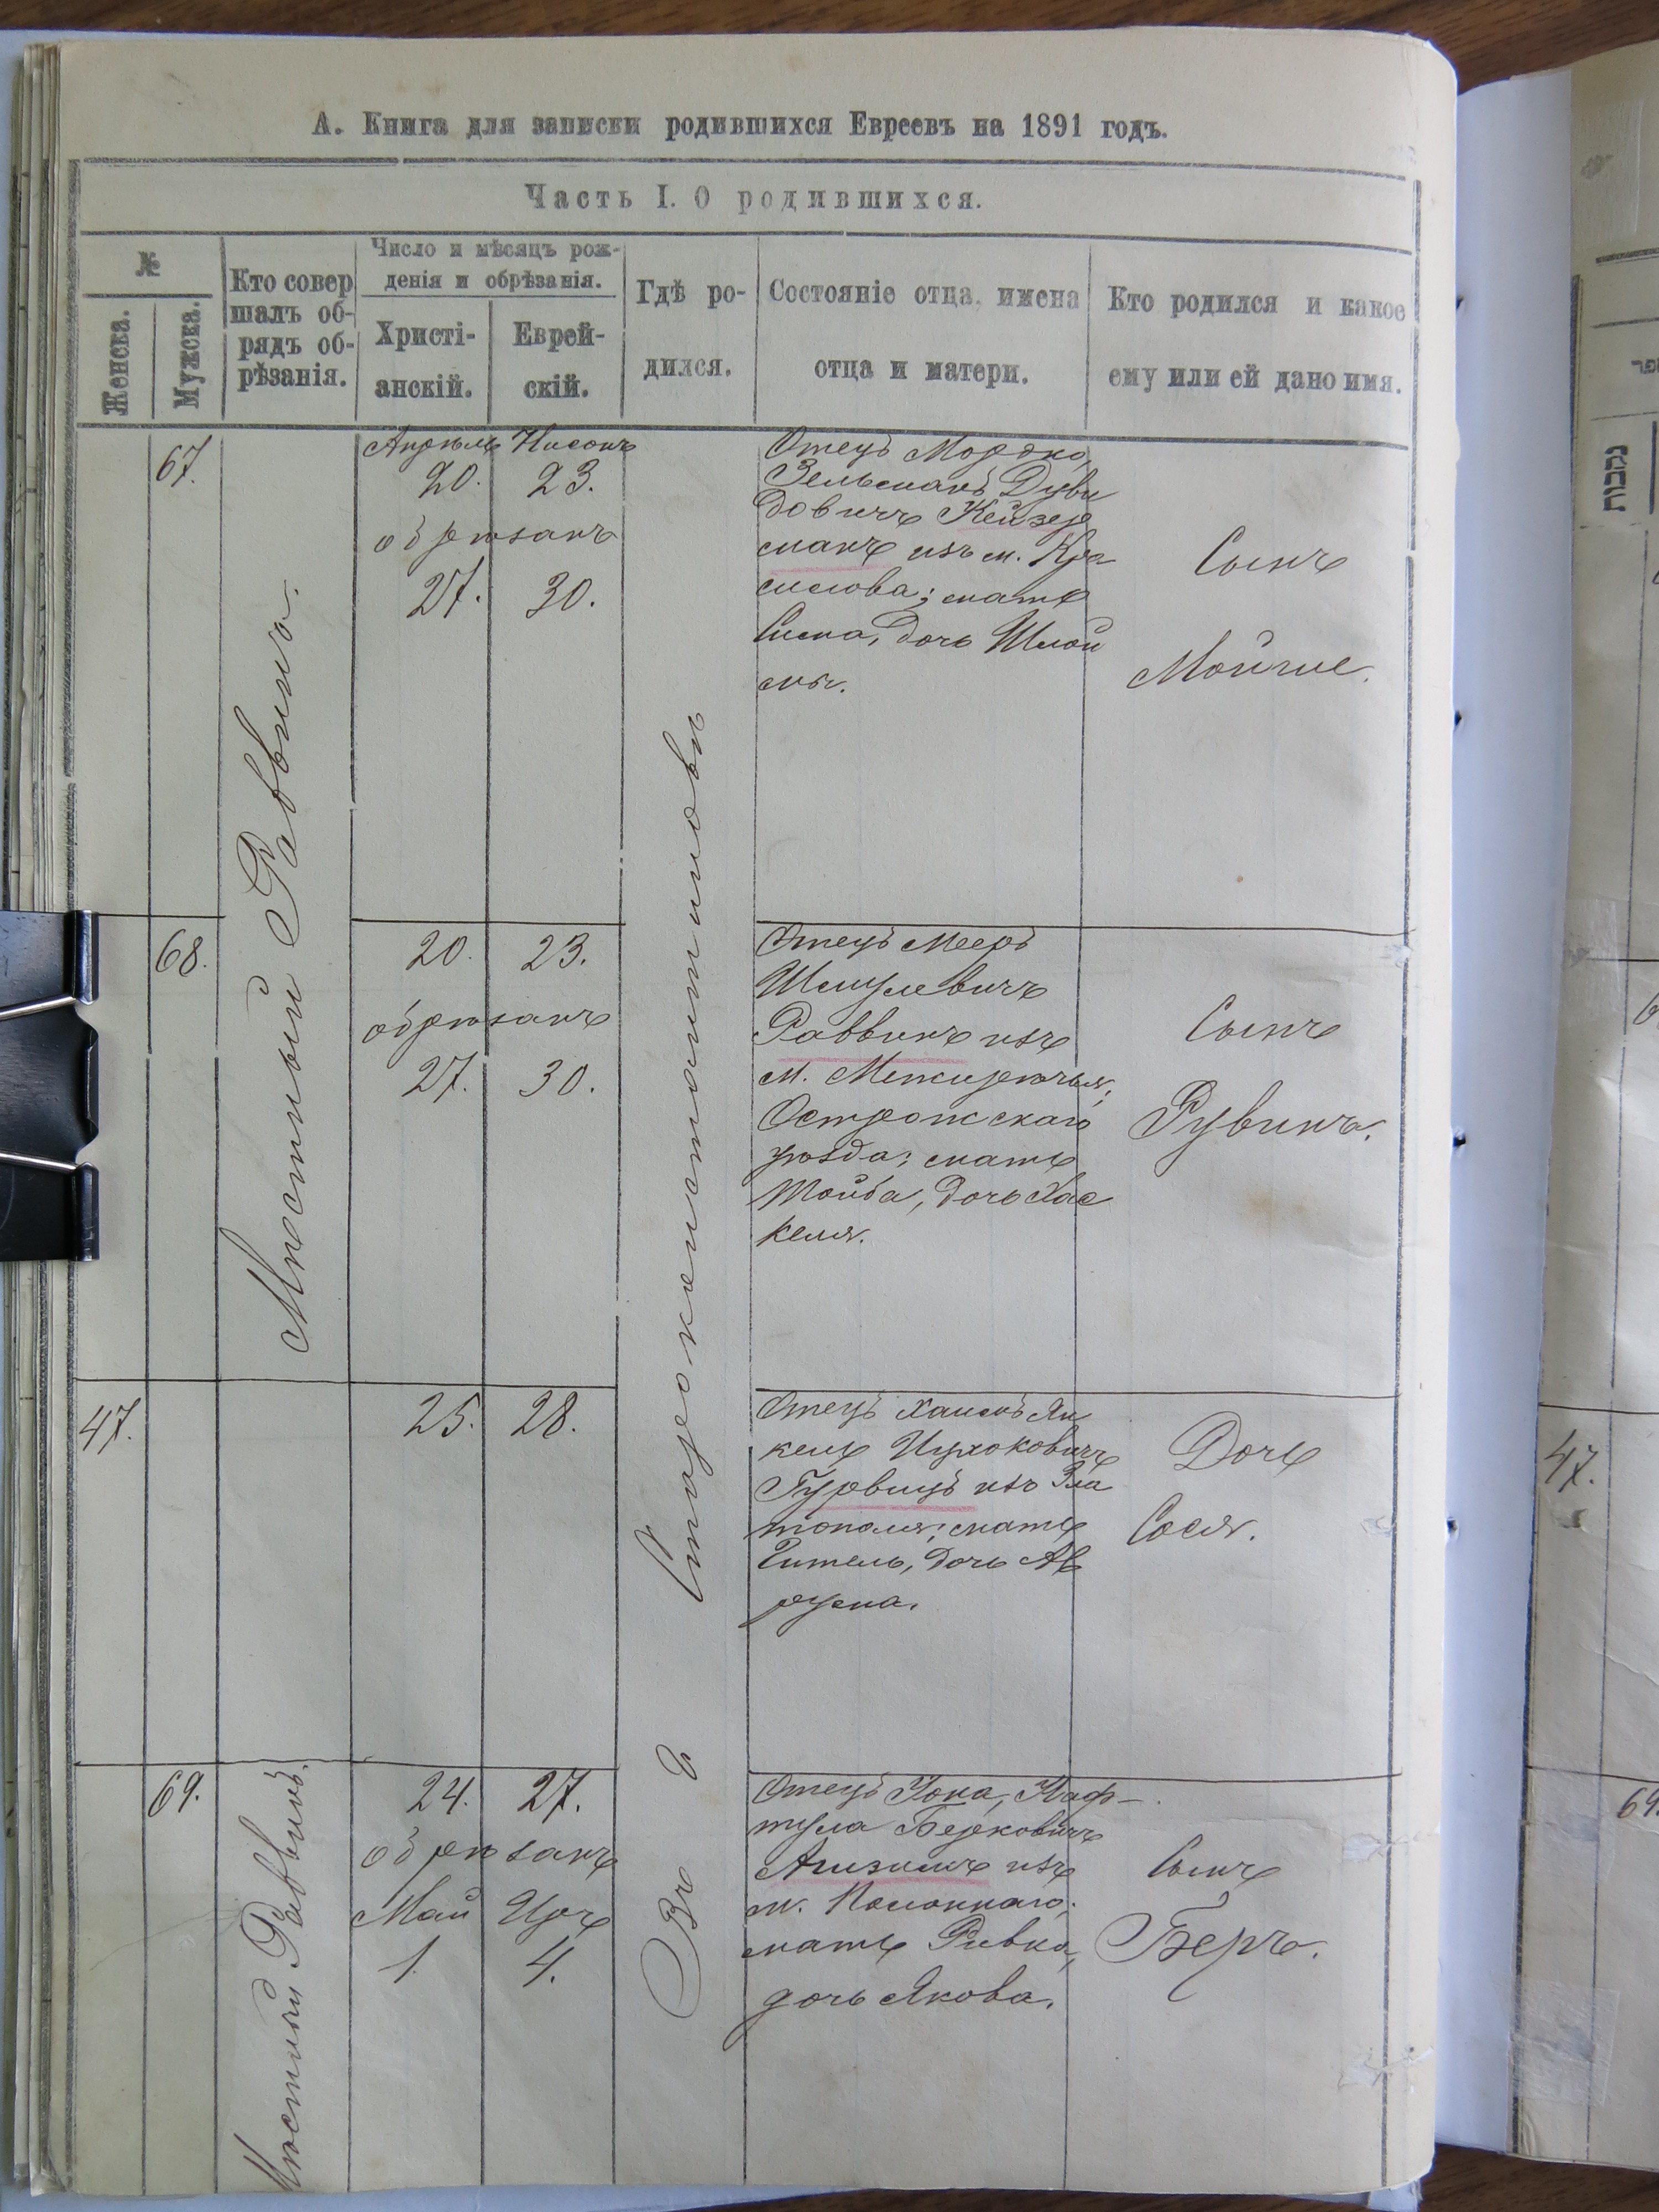 А. Книга для записки родившихся Евреевъ на 1891 годъ.
Часть I. О родившихся.
№
Женска.
Мужска.
Кто совер
шалъ об-
рядъ об-
рѣзанія.
Число и мѣсяцъ рож-
денія и обрѣзанія.
Христі-
анскій.
Еврей-
скій.
Гдѣ ро-
дился.
Состояніе отца, имена
отца и матери.
Кто родился и какое
ему или ей дано имя.
Мѣстный Раввинъ.
Въ г. Староконстантиновѣ
67.
Апрѣль Нисонъ
20. 23.
обрѣзанъ
27. 30.
Отецъ Мордко,
Зельманъ Дуви
довичъ Кейзер
манъ изъ м. Кра
силова; мать
Сима, дочь Шлой
мы.
Сынъ
Мойше.
68.
20. 23.
обрѣзанъ
27. 30.
Отецъ Мееръ
Шмулевичъ
Раввинъ изъ
м. Межирѣчья,
Острожскаго
уѣзда; мать
Тойба, дочь Хас
келя.
Сынъ
Рувинъ.
47.
25. 28.
Отецъ Хаимъ Ян
кель Ицхоковичъ
Гурвицъ изъ Зла
тополя; мать
Гитель, дочь Ав
рума.
Дочь
Сося.
69.
Мѣстный Раввинъ.
24. 27.
обрѣзанъ
Май Иръ
1. 4.
Отецъ Іона, Наф-
тула Берковичъ
изъ
м. Полоннаго;
мать Ривка,
дочь Якова.
Сынъ
Беръ.
נקבות
47.
69.